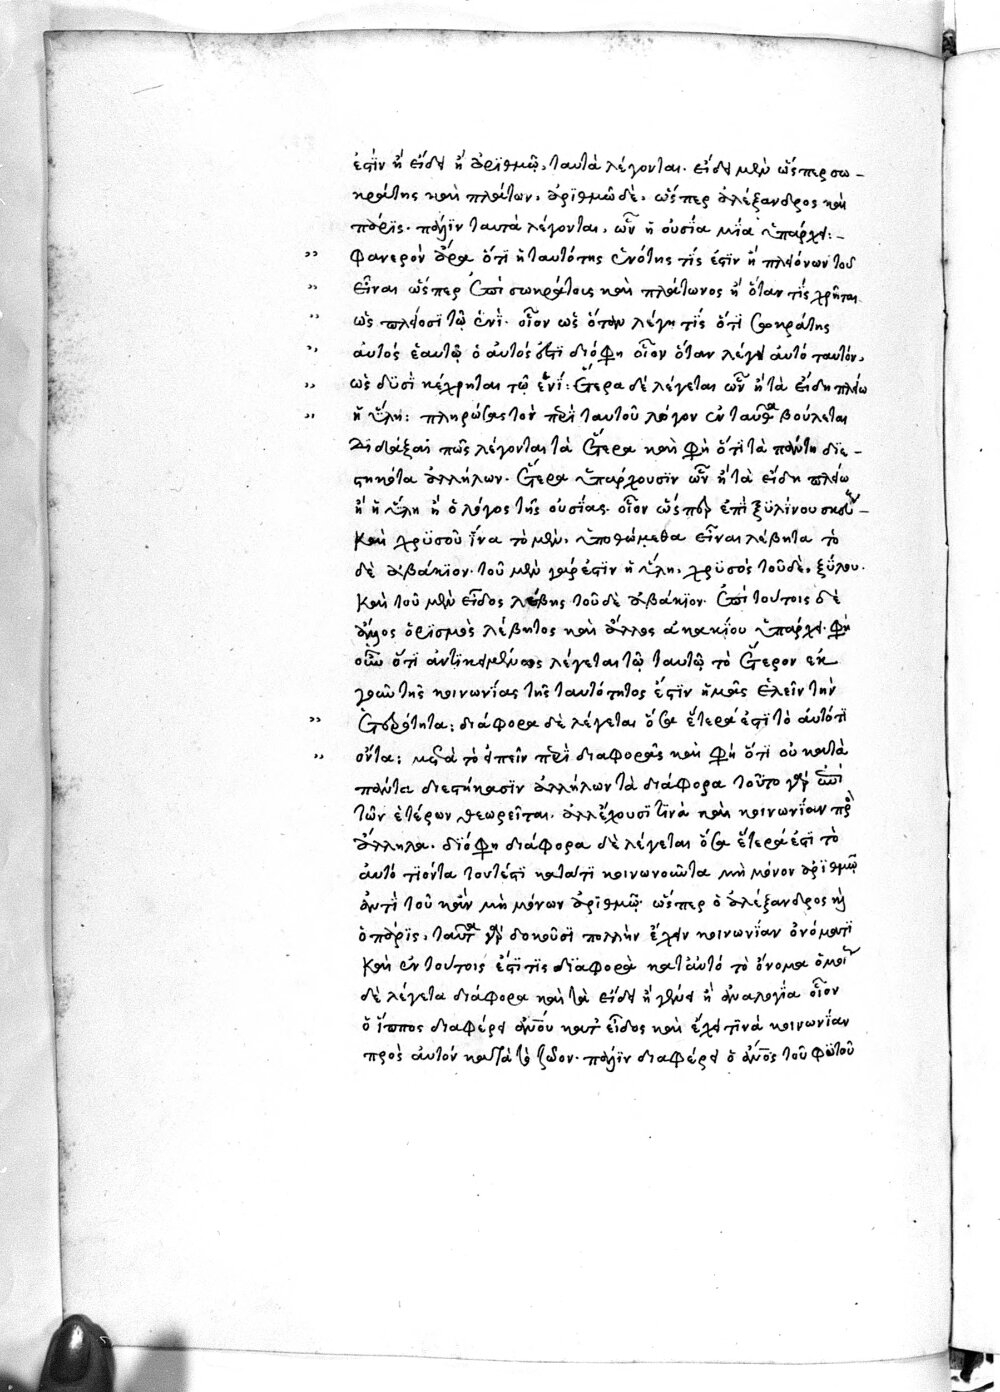 ἐστὶν ἢ εἴδει ἢ ἀριθμῷ, ταυτὰ λέγονται. εἴδει μὲν ὥσπερ σω-
κράτης καὶ πλάτων, ἀριθμῷ δὲ, ὥσπερ ἀλέξανδρος καὶ
πάρις. πάλιν ταυτὰ λέγονται, ὧν ἡ οὐσία μία ὑπάρχει:-
φανερὸν ἄρα ὅτι ἡ ταυτότης ἑνότης τίς ἐστιν ἢ πλειόνων τοῦ
εἶναι ὥσπερ ἐπὶ σωκράτους καὶ πλάτωνος ἢ ὅταν τίς χρῆται
ὡς πλείοσι τῷ ἑνί. οἷον ὡς ὅταν λέγῃ τίς ὅτι σωκράτης
αὐτός ἑαυτῷ ὁ αὐτός ἐστι διό φη οἷον ὅταν λέγει αὐτό ταυτόν,
ὡς δυσὶ κέχρηται τῷ ἑνί: ἕτερα δὲ λέγεται ὧν ἢ τὰ εἴδη πλείω
ἢ ὕλη: πληρώσας τὸν περὶ ταυτοῦ λόγον ἐνταῦθα βούλεται
διδάξαι πῶς λέγονται τὰ ἕτερα καὶ φη ὅτι τὰ πάντῃ διε-
στηκότα ἀλλήλων. ἕτερα ὑπάρχουσιν ὧν ἢ τὰ εἴδη πλείω
ἢ ἡ ὕλη ἢ ὁ λόγος τῆς οὐσίας. οἷον ὥσπερ ἐπὶ ξυλίνου σκεύ-
καὶ χρυσοῦ ἵνα τὸ μὲν, ὑποθώμεθα εἶναι λέβητα τὸ
δὲ ἀβάκιον. τοῦ μὲν γάρ ἐστιν ἡ ὕλη, χρυσὸς τοῦ δὲ, ξύλου.
καὶ τοῦ μὲν εἶδος λέβης τοῦ δὲ ἀβάκιον. ἐπὶ τούτοις δὲ
ἄλλος ὁρισμὸς λέβητος καὶ ἄλλος ἀβακίου ὑπάρχει. φη
οὖν ὅτι ἀντικειμένως λέγεται τῷ ταυτῷ τὸ ἕτερον ἐκ
γὰρ τῆς κοινωνίας τῆς ταυτότητος ἔστιν ἡμᾶς ἑλεῖν τὴν
ἑτερότητα: διάφορα δὲ λέγεται ὅσα ἕτερά ἐστι τὸ αὐτό τι
ὄντα: μετὰ τὸ εἰπεῖν περὶ διαφορᾶς καὶ φη ὅτι οὐ κατὰ
πάντα διεστήκασιν ἀλλήλων τὰ διάφορα τοῦτο γὰρ ἐπὶ
τῶν ἑτέρων θεωρεῖται. ἀλλ' ἔχουσί τινὰ καὶ κοινωνίαν πρὸς
ἄλληλα. διό φη διάφορα δὲ λέγεται ὅσα ἕτερά ἐστι τὸ
αὐτό τι ὄντα τουτέστι κατά τι κοινωνοῦντα μὴ μόνον ἀριθμῷ
ἀντὶ τοῦ κἂν μὴ μόνων ἀριθμῷ. ὥσπερ ὁ ἀλέξανδρος καὶ
ὁ πάρις, ταῦτα γὰρ δοκοῦσι πολλὴν ἔχειν κοινωνίαν ὀνόματι
καὶ ἐν τούτοις ἐστί τις διαφορὰ κατ' αὐτό τὸ ὄνομα ὁμοί
δὲ λέγεται διάφορα καὶ τὰ εἴδει ἢ γένει ἢ ἀναλογία οἷον
ὁ ἵππος διαφέρει ἀνου κατ' εἶδος καὶ ἔχει τινὰ κοινωνίαν
πρὸς αὐτόν κατὰ τὸ ζῶον. πάλιν διαφέρει ὁ ἀνος τοῦ φυτοῦ